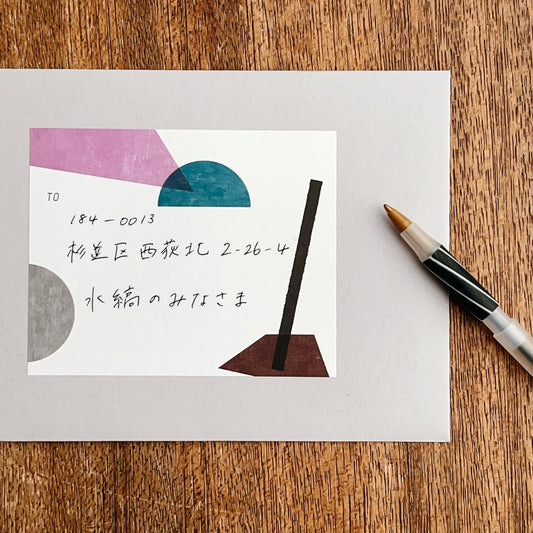 TO
184-0013
杉並区西荻北 2-26-4
水縞のみなさま